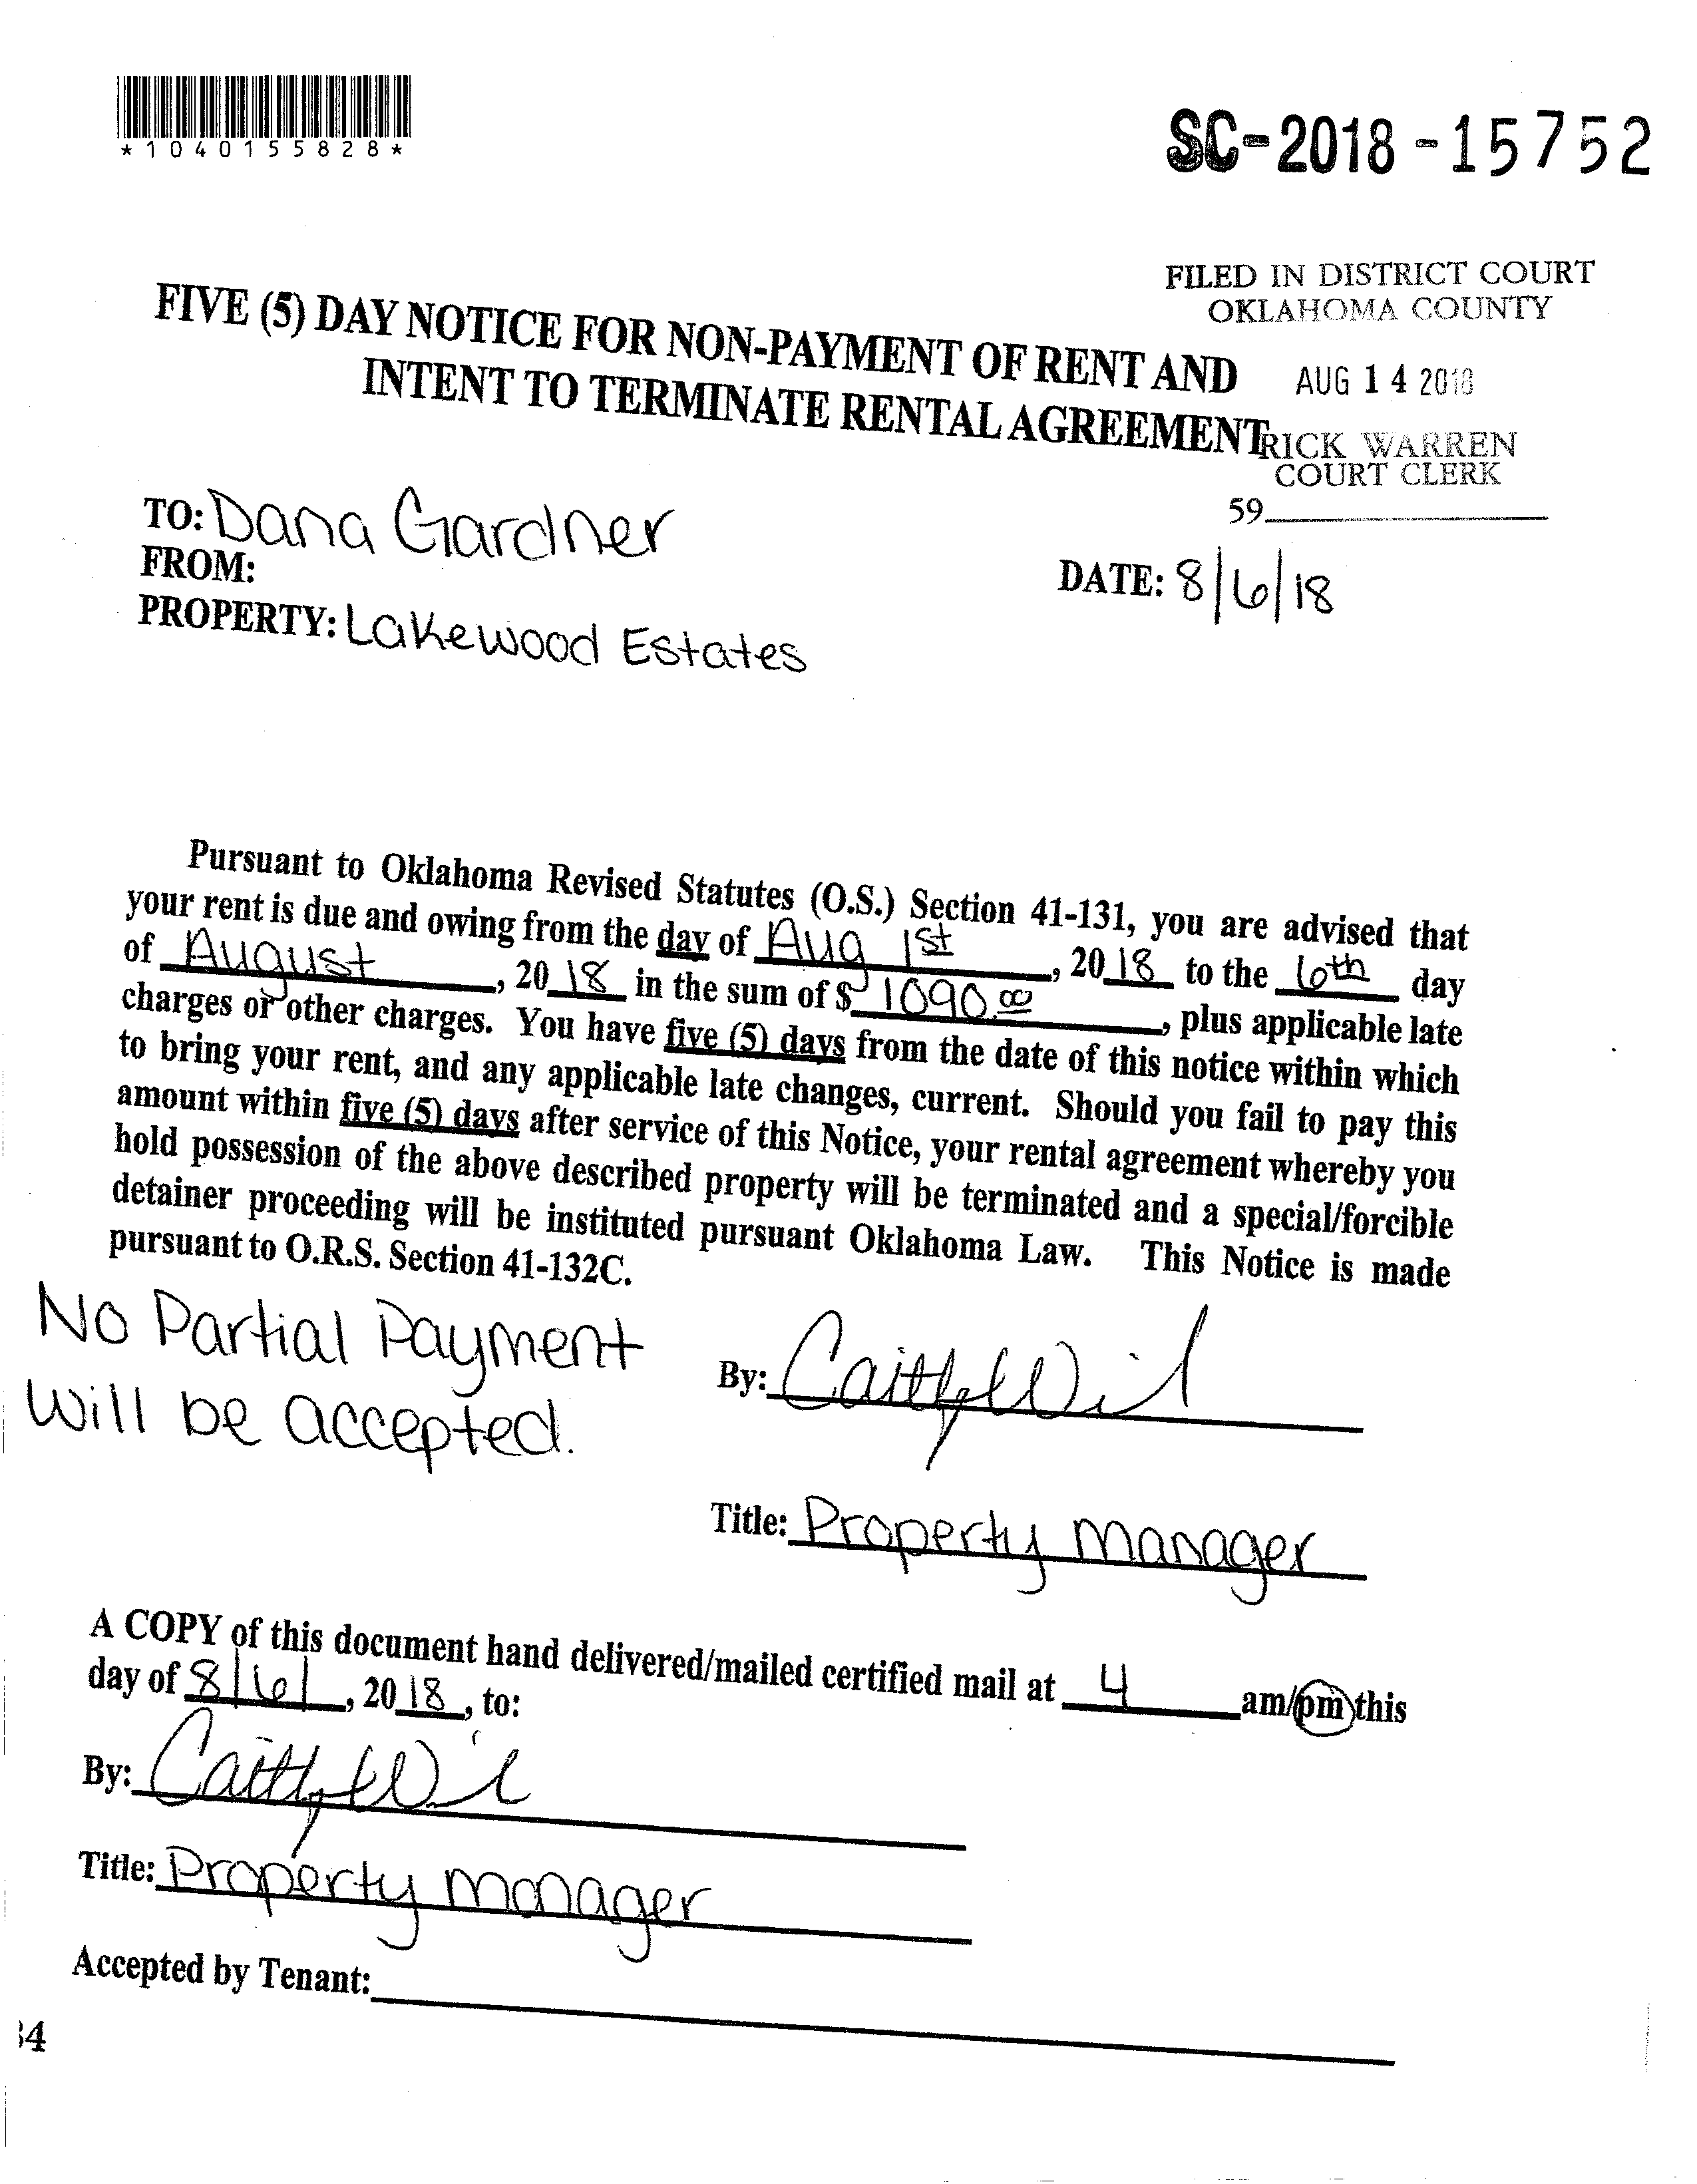 *1040155828*
SC-2018-15752
FILED IN DISTRICT COURT
OKLAHOMA COUNTY
FIVE (5) DAY NOTICE FOR NON-PAYMENT OF RENT AND
AUG 14 2018
INTENT TO TERMINATE RENTAL AGREEMENT
RICK WARREN
COURT CLERK
59
TO: Dana Gardner
FROM:
DATE: 8/6/18
PROPERTY: Lakewood Estates
Pursuant to Oklahoma Revised Statutes (O.S.) Section 41-131, you are advised that
your rent is due and owing from the day of Aug 1st, 2018 to the 6th day
of August, 2018 in the sum of $ 1090.00, plus applicable late
charges or other charges. You have five (5) days from the date of this notice within which
to bring your rent, and any applicable late changes, current. Should you fail to pay this
amount within five (5) days after service of this Notice, your rental agreement whereby you
hold possession of the above described property will be terminated and a special/forcible
detainer proceeding will be instituted pursuant Oklahoma Law. This Notice is made
pursuant to O.R.S. Section 41-132C.
No Partial Payment
Will be accepted.
By:
Title: Property Manager
A COPY of this document hand delivered/mailed certified mail at 4 am/pm this
day of 8/6/, 2018, to:
By:
Title: Property Manager
Accepted by Tenant:
34